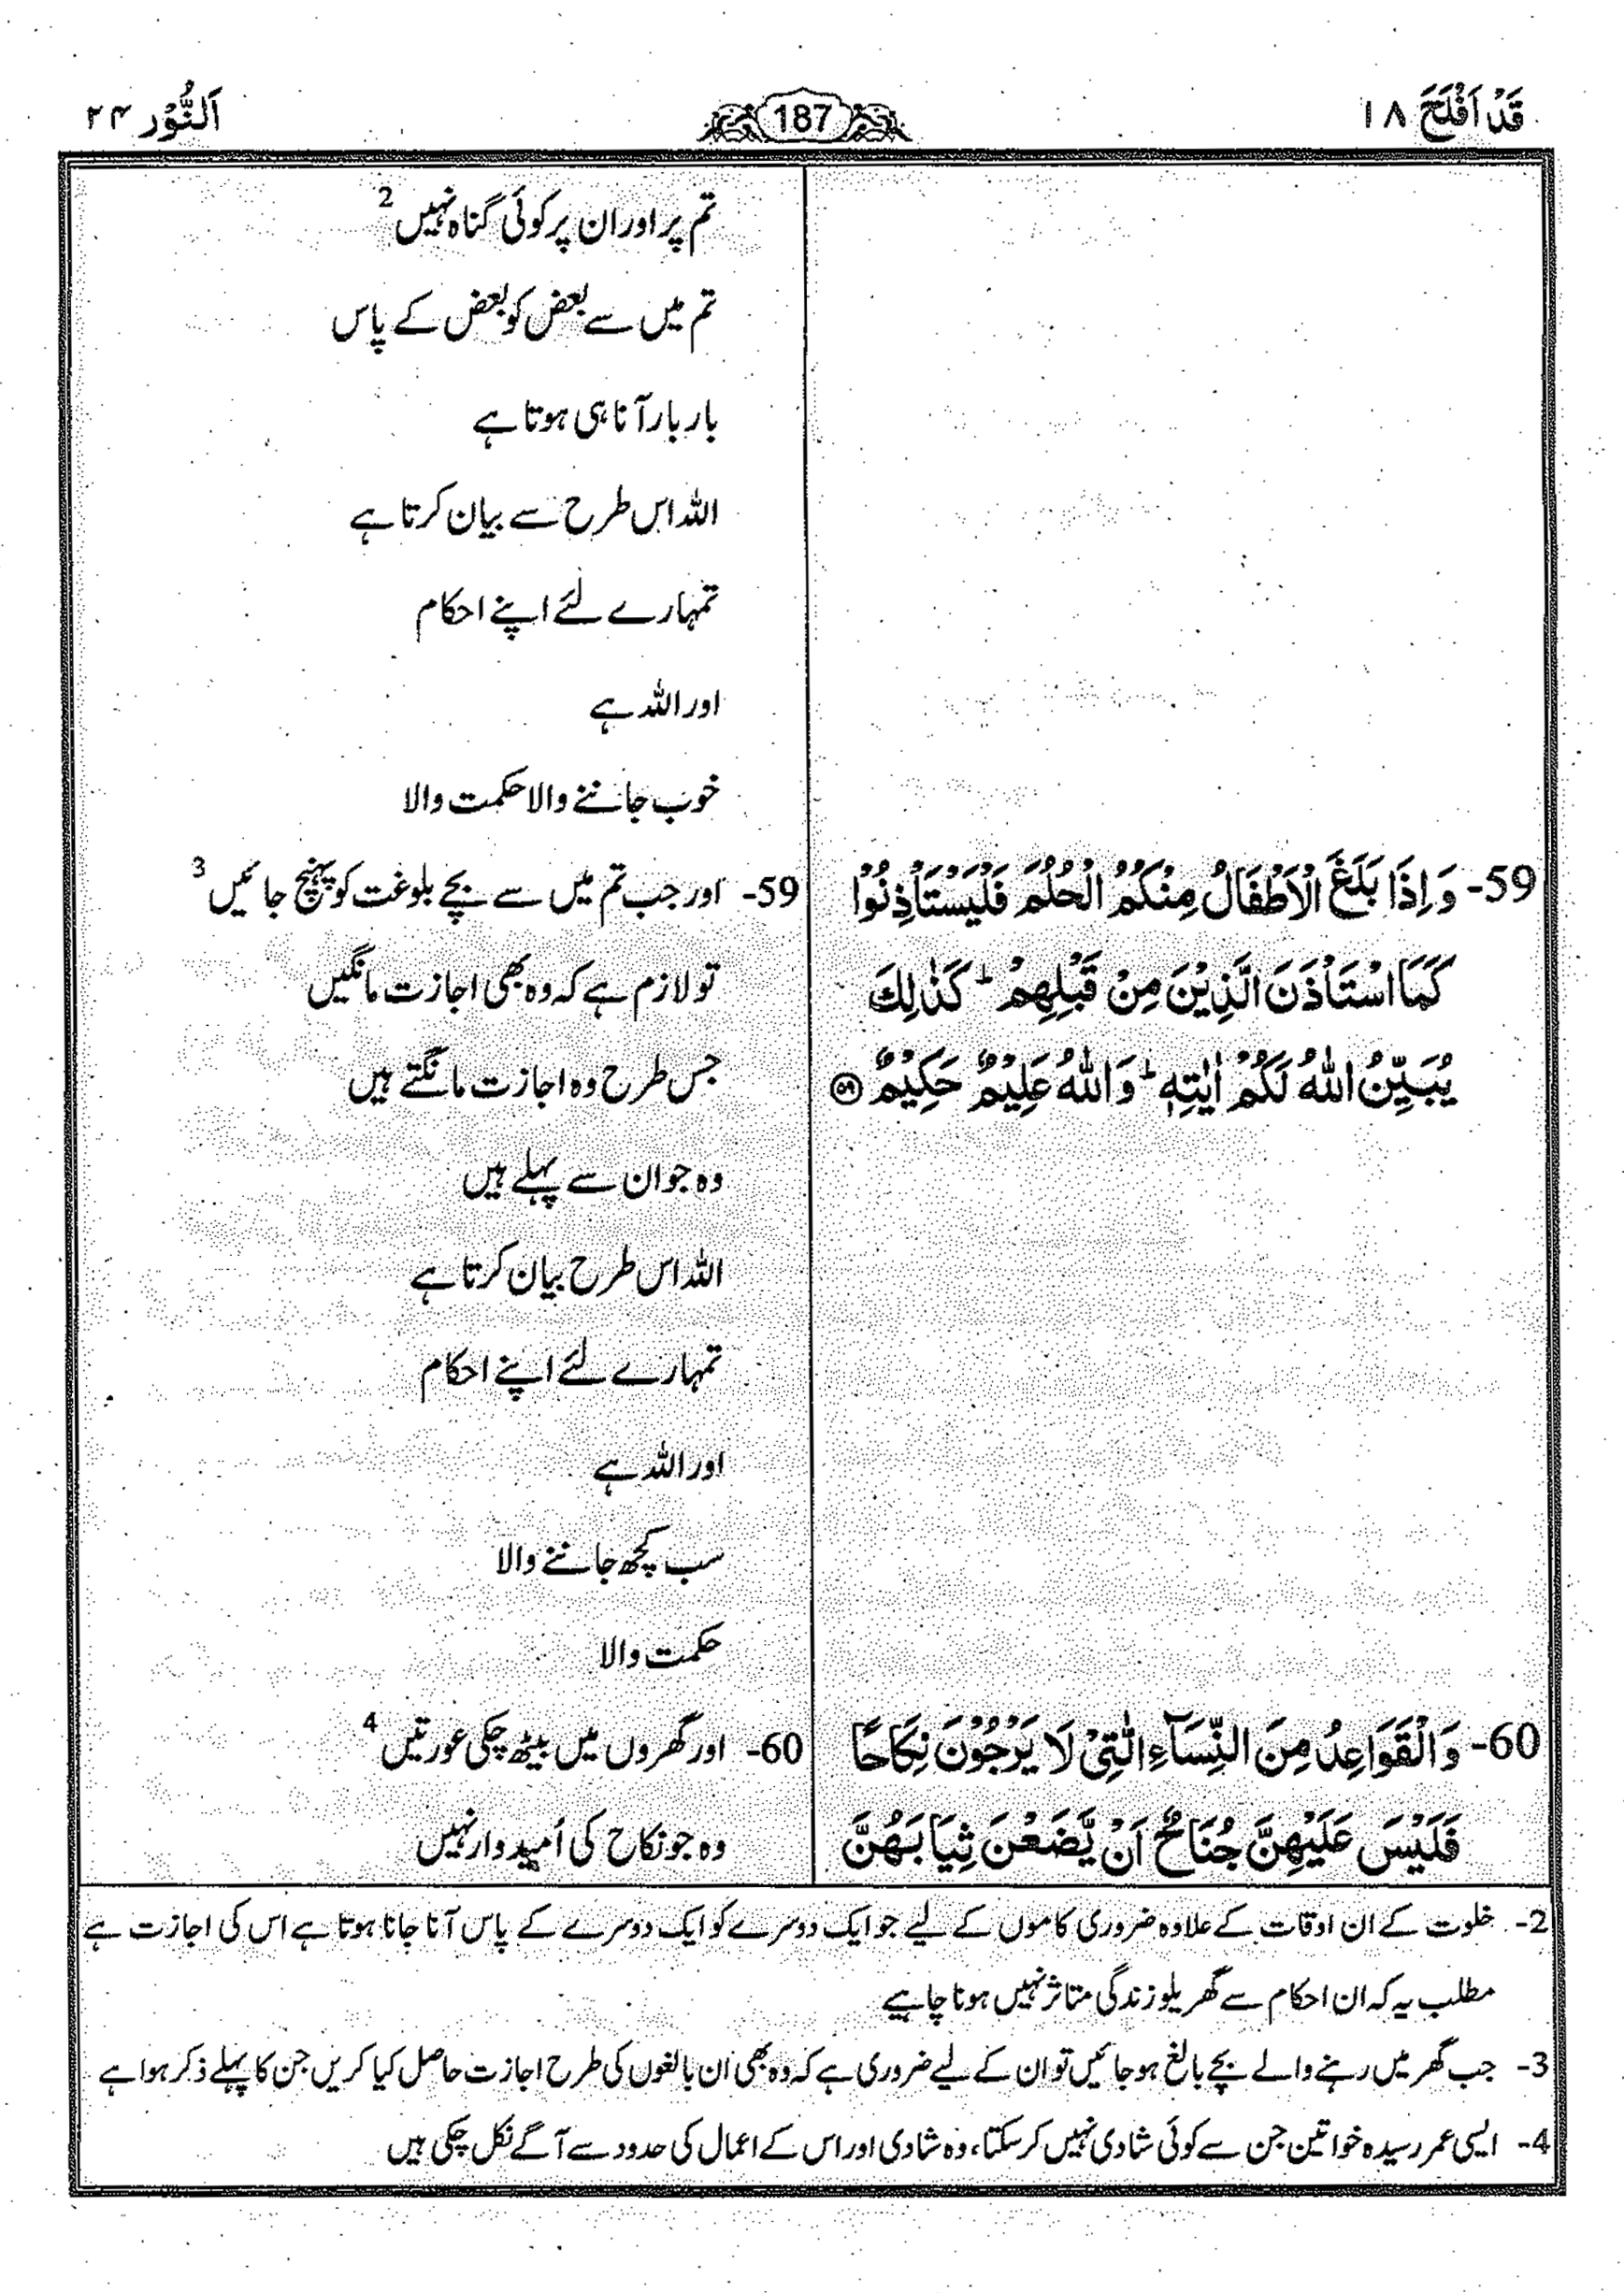 قَدْ اَفْلَحَ ۱۸
187
اَلنُّوْر ۲۴
تم پر اور ان پر کوئی گناہ نہیں 2
تم میں سے بعض کو بعض کے پاس
بار بار آنا ہی ہوتا ہے
اللہ اس طرح سے بیان کرتا ہے
تمہارے لئے اپنے احکام
اور اللہ ہے
خوب جاننے والا حکمت والا
59- وَ اِذَا بَلَغَ الْاَطْفَالُ مِنْكُمُ الْحُلُمَ فَلْيَسْتَاْذِنُوْا
كَمَا اسْتَاْذَنَ الَّذِيْنَ مِنْ قَبْلِهِمْ ؕ كَذٰلِكَ
يُبَيِّنُ اللّٰهُ لَكُمْ اٰيٰتِهٖ ؕ وَ اللّٰهُ عَلِيْمٌ حَكِيْمٌ ﴿۵۹﴾
59- اور جب تم میں سے بچے بلوغت کو پہنچ جائیں 3
تو لازم ہے کہ وہ بھی اجازت مانگیں
جس طرح وہ اجازت مانگتے ہیں
وہ جو ان سے پہلے ہیں
اللہ اس طرح بیان کرتا ہے
تمہارے لئے اپنے احکام
اور اللہ ہے
سب کچھ جاننے والا
حکمت والا
60- وَ الْقَوَاعِدُ مِنَ النِّسَآءِ الّٰتِيْ لَا يَرْجُوْنَ نِكَاحًا
فَلَيْسَ عَلَيْهِنَّ جُنَاحٌ اَنْ يَّضَعْنَ ثِيَابَهُنَّ
60- اور گھروں میں بیٹھ چکی عورتیں 4
وہ جو نکاح کی اُمیدوار نہیں
2- خلوت کے ان اوقات کے علاوہ ضروری کاموں کے لیے جو ایک دوسرے کو ایک دوسرے کے پاس آنا جانا ہوتا ہے اس کی اجازت ہے
مطلب یہ کہ ان احکام سے گھریلو زندگی متاثر نہیں ہونا چاہیے
3- جب گھر میں رہنے والے بچے بالغ ہو جائیں تو ان کے لیے ضروری ہے کہ وہ بھی اُن بالغوں کی طرح اجازت حاصل کیا کریں جن کا پہلے ذکر ہوا ہے
4- ایسی عمر رسیدہ خواتین جن سے کوئی شادی نہیں کر سکتا، وہ شادی اور اس کے اعمال کی حدود سے آگے نکل چکی ہیں